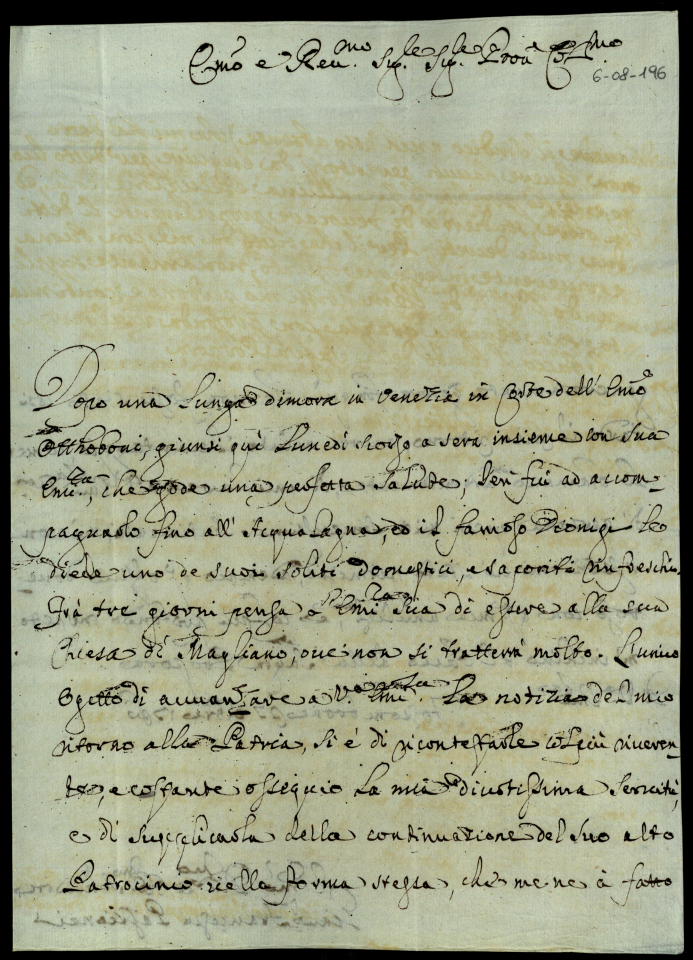 Emo e Rev.mo Sig.re Sig.re Pron Colmo
6-08-196
Dopo una lunga dimora in Venezia in Corte dell' Emo
Otthoboni, giunsi quì Lunedì scorso a sera insieme con Sua
Emi.za, che gode una perfetta salute; Ieri fui ad accom-
pagnarlo fino all' Acqualagna, ed il famoso Dionigi le
diede uno de suoi soliti domestici, e saporiti rinfreschi.
Frà tre giorni pensa l'Emi.za Sua di essere alla sua
Chiesa di Magliano, ove non si tratterrà molto. L'unico
ogetto di avvanzare a V.a Emi.za la notizia del mio
ritorno alla Patria, si è di ricontestarle col più riveren-
te, e costante ossequio la mia divotissima Servitù,
e di supplicarla della continuazione del Suo alto
Patrocinio nella forma stessa, che me ne à fatto